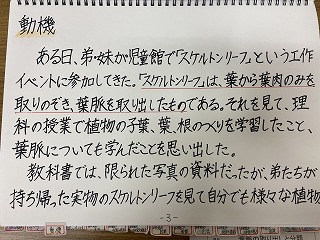 動機
ある日、弟・妹が児童館で「スケルトンリーフ」という工作
イベントに参加してきた。「スケルトンリーフ」は、葉から葉肉のみを
取りのぞき、葉脈を取り出したものである。それを見て、理
科の授業で植物の子葉、葉、根のつくりを学習したこと、
葉脈についても学んだことを思い出した。
教科書では、限られた写真の資料だったが、弟たちが
持ち帰った実物のスケルトンリーフを見て自分でも様々な植物
-3-